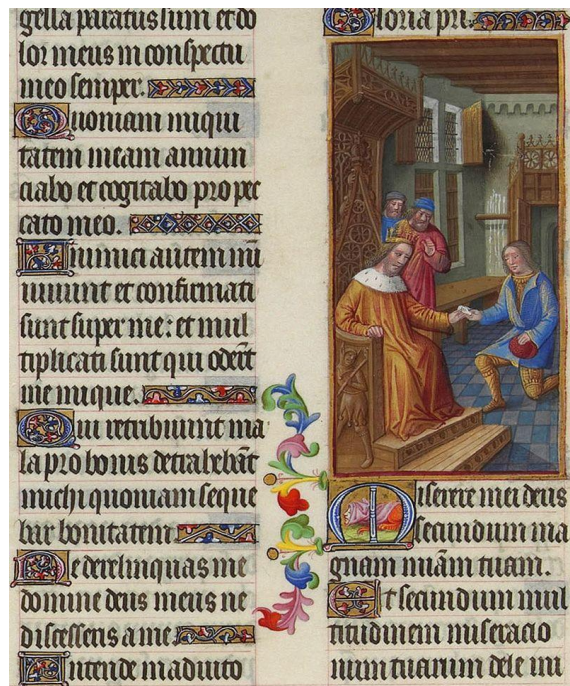 gella paratus sum et do
lor meus in conspectu
meo semper.
Quoniam iniqui
tatem meam annun
ciabo et cogitabo pro pec
cato meo.
Inimici autem mei
uiuunt et confirmati
sunt super me: et mul
tiplicati sunt qui oderūt
me inique.
Qui retribuunt ma
la pro bonis detrahebāt
michi quoniam seque
bar bonitatem
Ne derelinquas me
domine deus meus ne
discesseris a me.
Intende in adiuto
Gloria pri.
Miserere mei deus
secundum ma
gnam miam tuam.
Et secundum mul
titudinem miseracio
num tuarum dele ini